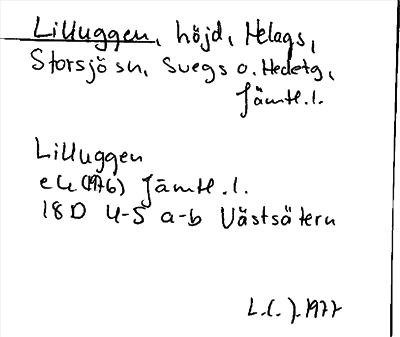 Lilluggen, höjd, Helags,
Storsjö sn, Svegs o. Hedetg,
Jämtl.l.
Lilluggen
ek (1976) Jämtl.l.
18D 4-5 a-b Västsätern
1977